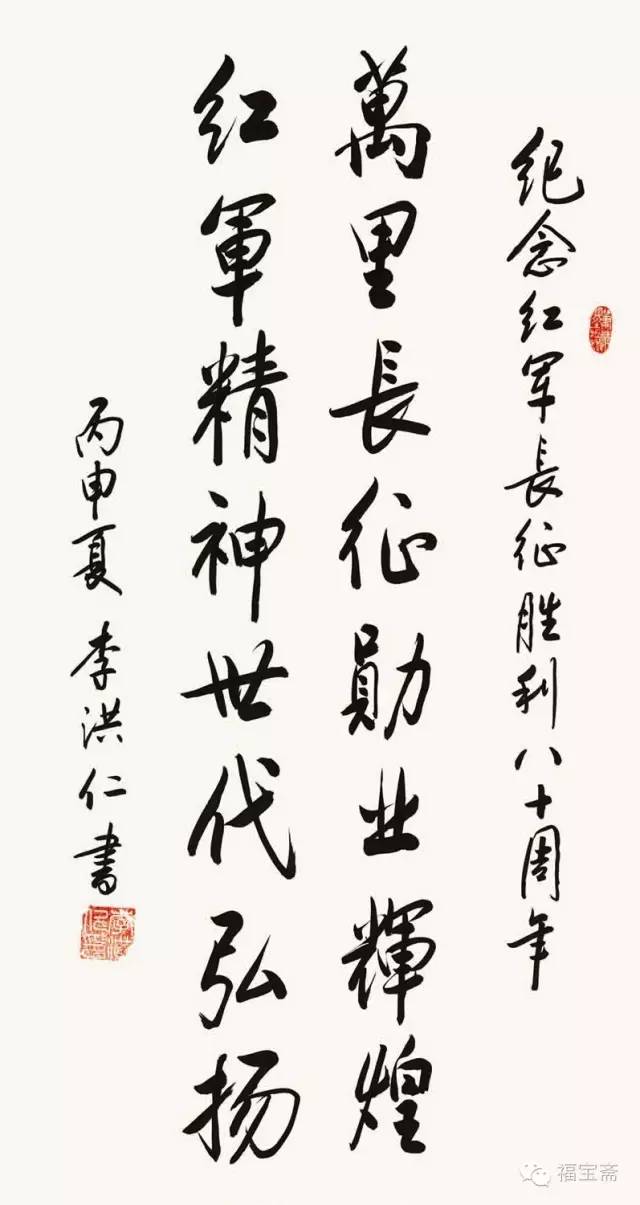 纪念红军長征胜利八十周年
萬里長征勛业輝煌
红軍精神世代弘扬
丙申夏 李洪仁書
福宝斋